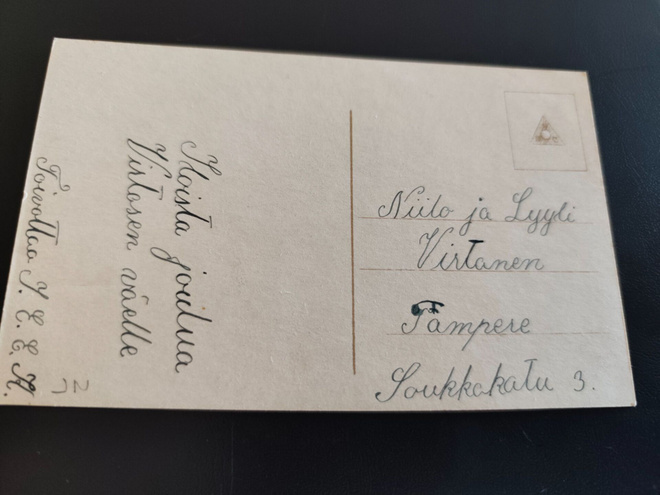 Iloista joulua
Virtasen väelle
Toivottaa I. E. E. K.
Niilo ja Lyyli
Virtanen
Tampere
Soukkakatu 3.